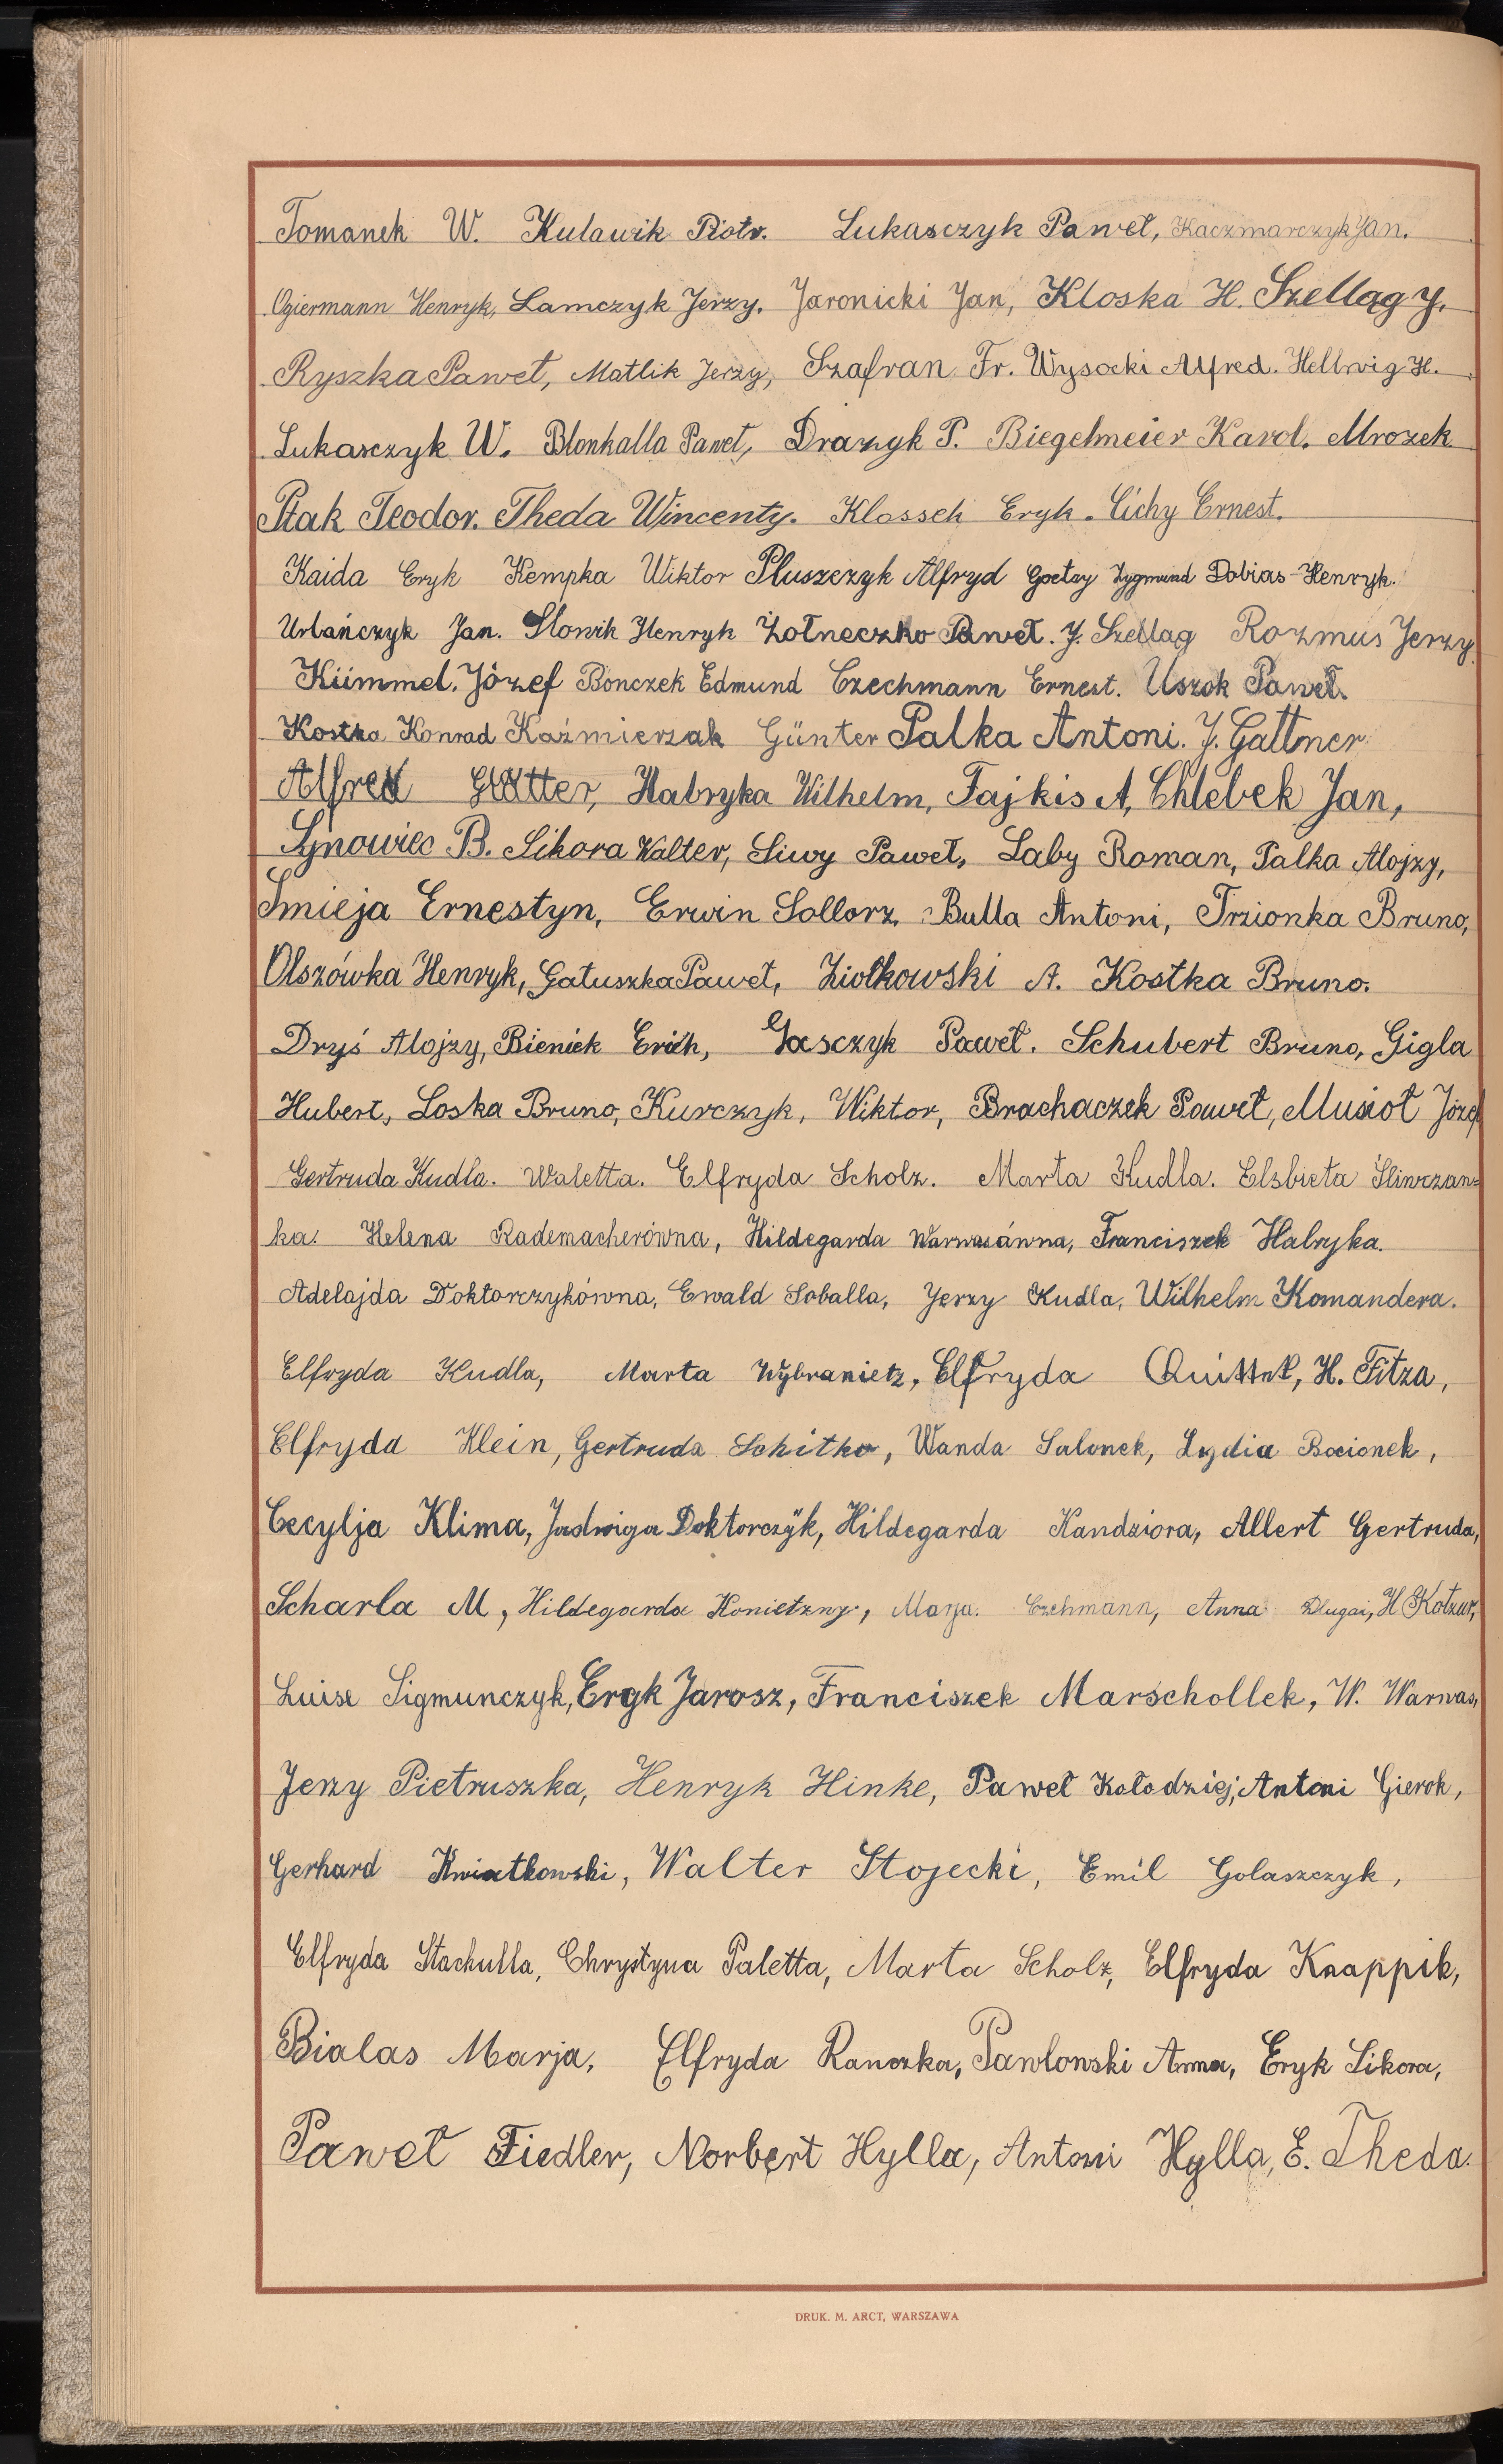 Tomanek W. Kulawik Piotr. Lukasczyk Paweł, Kaczmarczyk Jan.
Ogiermann Henryk, Lamczyk Jerzy. Jaronicki Jan, Kloska H. Szelląg J.
Ryszka Paweł, Matlik Jerzy, Szafran Fr. Wysocki Alfred. Hellwig H.
Lukasczyk W. Blonkalla Paweł, Drazyk P. Biegelmeier Karol. Mrozek
Ptak Teodor. Theda Wincenty. Klossek Eryk. Cichy Ernest.
Kaida Eryk Kempka Wiktor Pluszczyk Alfryd Goetzy Zygmund Dobias-Henryk.
Urbańczyk Jan. Slowik Henryk Żołneczko Paweł. J. Szelląg Rozmus Jerzy.
Kümmel. Józef Bonczek Edmund Czechmann Ernest. Uszok Paweł.
Kostka Konrad Kaźmierzak Günter Palka Antoni. J. Gattner
Alfred Habryka Wilhelm, Fajkis A, Chlebek Jan,
Synowiec B. Sikora Walter, Siwy Paweł, Laby Roman, Palka Alojzy,
Smieja Ernestyn, Erwin Sollorz, Bulla Antoni, Trzionka Bruno,
Olszówka Henryk, Gałuszka Paweł, Ziołkowski A. Kostka Bruno.
Dryś Alojzy, Bieniek Erich, Gasczyk Paweł. Schubert Bruno, Gigla
Hubert, Loska Bruno, Kurczyk, Wiktor, Brachaczek Paweł, Musioł Józef
Gertruda Kudla. Waletta. Elfryda Scholz. Marta Kudla. Elsbieta Śliwczan=
ka. Helena Rademacherówna, Hildegarda Warwasówna, Franciszek Habryka.
Adelajda Doktorczykówna, Ewald Soballa, Jerzy Kudla, Wilhelm Komandera.
Elfryda Kudla, Marta Wybranietz, Elfryda H. Fitza,
Elfryda Klein, Gertruda Schitko, Wanda Salonek, Lydia Bocionek,
Cecylja Klima, Jadwiga Doktorczyk, Hildegarda Kandziora, Allert Gertruda,
Scharla M, Hildegarda Konietzny, Marja. Czehmann, Anna Dlugai, H Kotzur,
Luise Sigmunczyk, Eryk Jarosz, Franciszek Marschollek, W. Warwas,
Jerzy Pietruszka, Henryk Hinke, Paweł Kołodziej, Antoni Gierok,
Gerhard Kwiatkowski, Walter Stojecki, Emil Golaszczyk,
Elfryda Stachulla, Chrystyna Paletta, Marta Scholz, Elfryda Knappik,
Bialas Marja, Elfryda Ranczka, Pawlowski Anna, Eryk Sikora,
Paweł Fiedler, Norbert Hylla, Antoni Hylla, E. Theda.
DRUK. M. ARCT, WARSZAWA